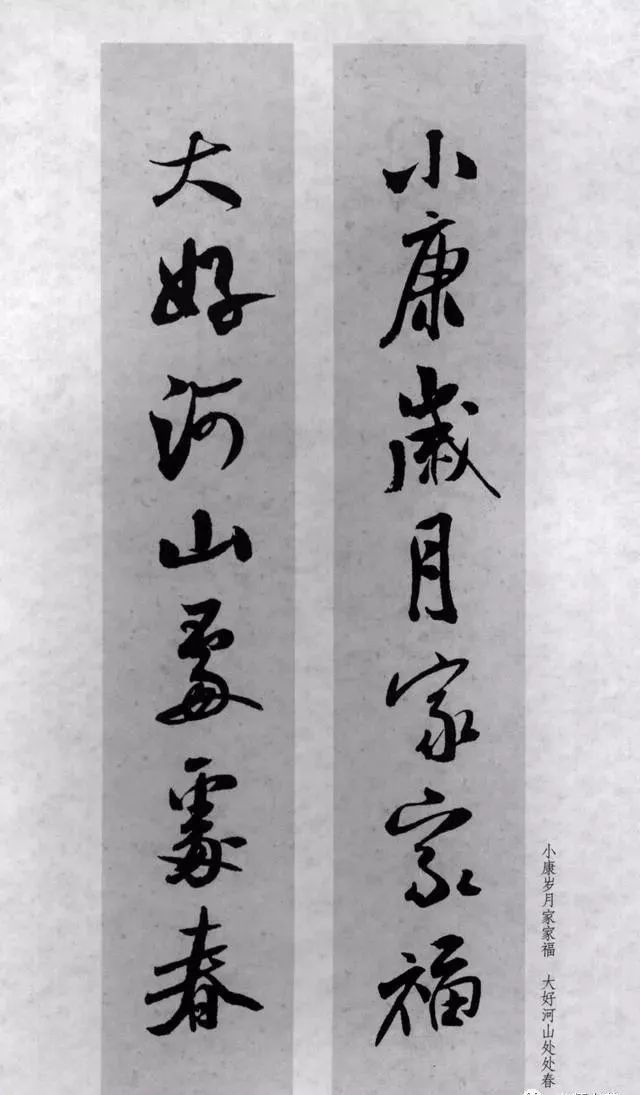 小康歲月家家福
大好河山處處春
小康岁月家家福 大好河山处处春